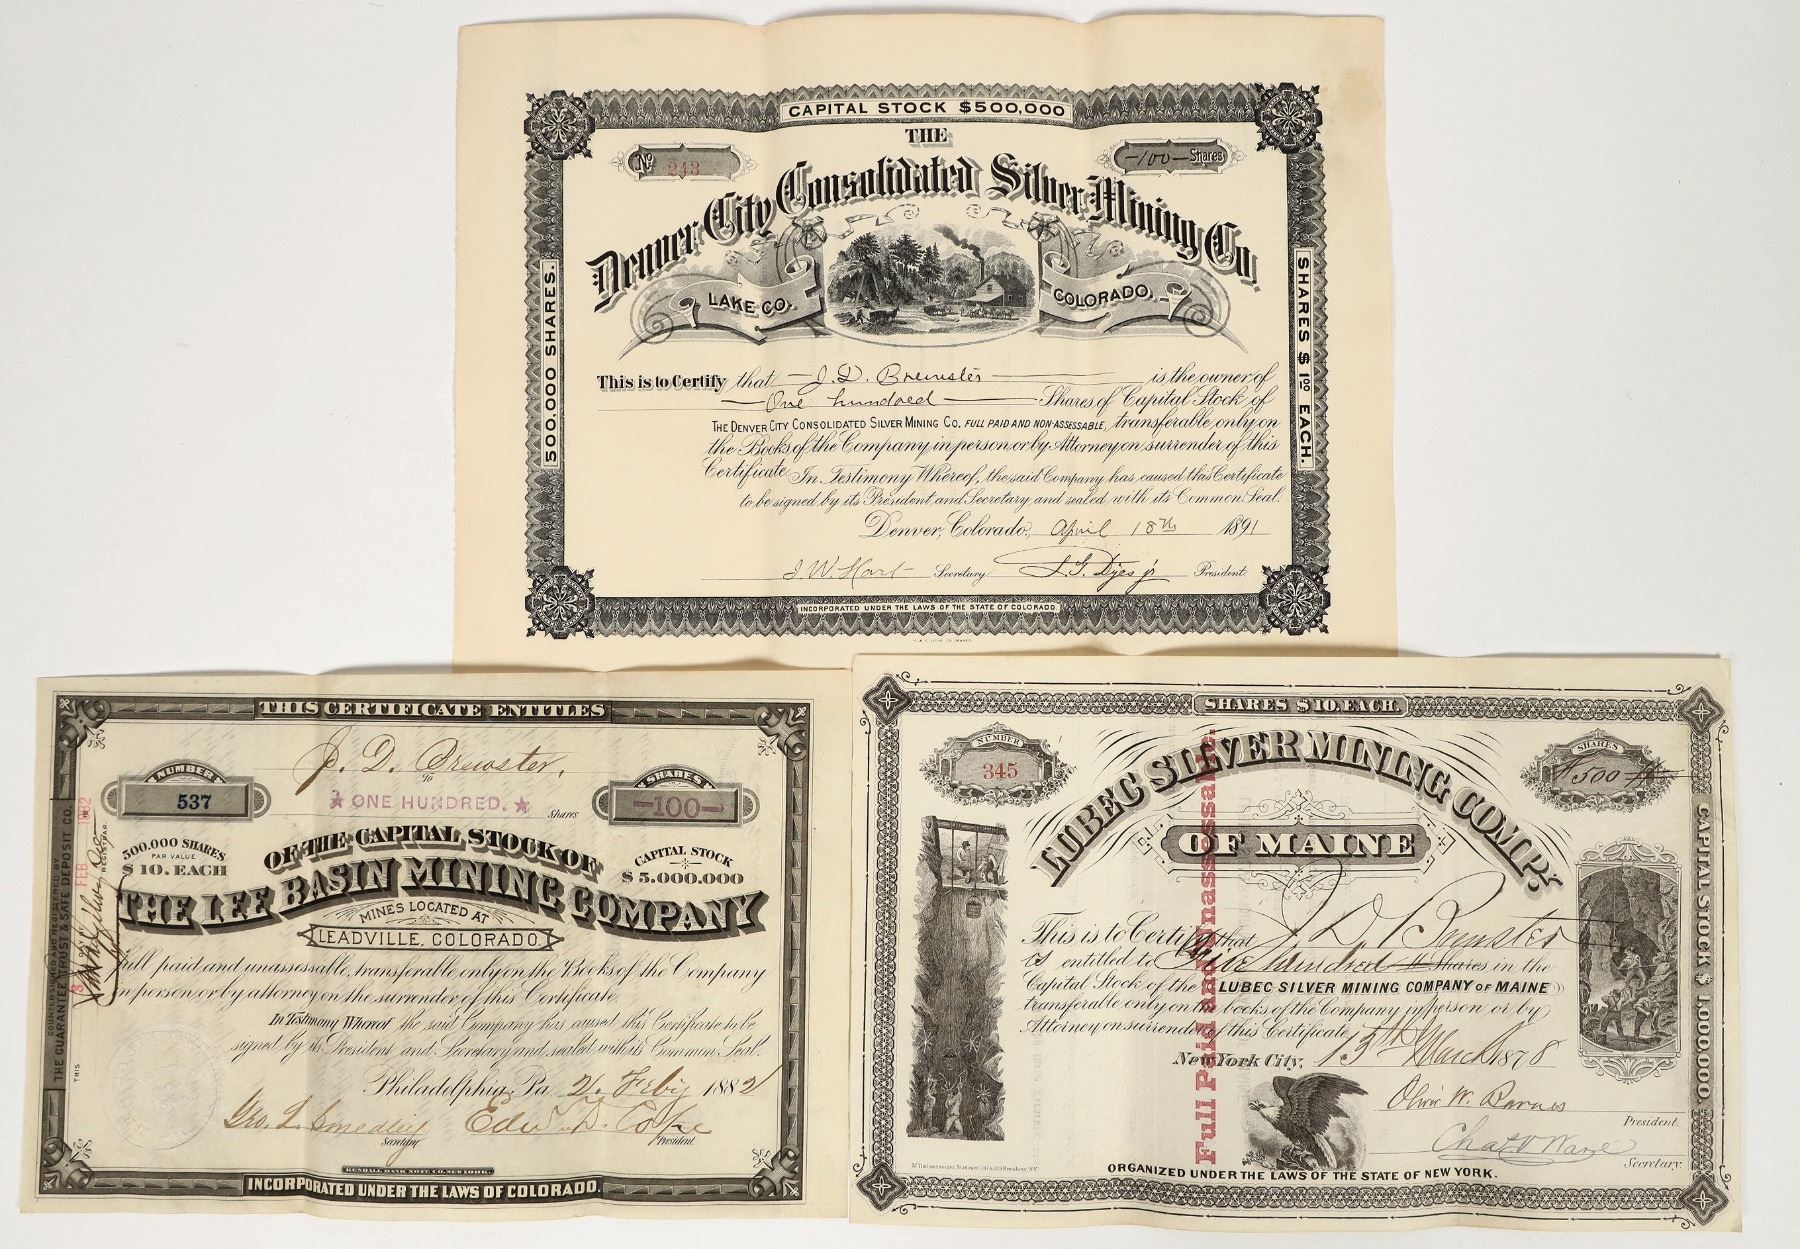 CAPITAL STOCK $500,000
THE
Nº 243
-100- Shares
Denver City Consolidated Silver Mining Co.
LAKE CO. COLORADO,
500,000 SHARES.
SHARES $1.00 EACH.
This is to Certify that J. D. Brewster is the owner of
One hundred Shares of Capital Stock of
THE DENVER CITY CONSOLIDATED SILVER MINING CO. FULL PAID AND NON-ASSESSABLE, transferable only on
the Books of the Company in person or by Attorney on surrender of this
Certificate. In Testimony Whereof, the said Company has caused this Certificate
to be signed by its President and Secretary and sealed with its Common Seal.
Denver, Colorado, April 18th 1891
J. W. Hart Secretary. President.
INCORPORATED UNDER THE LAWS OF THE STATE OF COLORADO.
THIS CERTIFICATE ENTITLES
J. D. Brewster,
To
NUMBER
537
★ ONE HUNDRED. ★ Shares
SHARES
-100-
500.000 SHARES
PAR VALUE
$10. EACH
OF THE CAPITAL STOCK OF
CAPITAL STOCK
$5.000.000
THE LEE BASIN MINING COMPANY
MINES LOCATED AT
LEADVILLE, COLORADO.
full paid and unassessable, transferable only on the Books of the Company
in person or by attorney on the surrender of this Certificate.
In Testimony Whereof the said Company has caused this Certificate to be
signed by its President and Secretary and sealed with its Common Seal.
Philadelphia, Pa 1882
Geo. L. Smedley
President.
KENDALL BANK NOTE CO. NEW YORK.
INCORPORATED UNDER THE LAWS OF COLORADO.
COUNTERSIGNED AND REGISTERED BY
THE GUARANTEE TRUST & SAFE DEPOSIT CO.
THIS
FEB
REGISTRAR
SHARES $10. EACH.
NUMBER
345
SHARES
500
LUBEC SILVER MINING COMP.Y
OF MAINE
CAPITAL STOCK $1,000,000
Full Paid and Unassessable.
This is to Certify that J D Brewster
is entitled to Five hundred Shares in the
Capital Stock of the LUBEC SILVER MINING COMPANY OF MAINE
transferable only on the books of the Company in person or by
Attorney on surrender of this Certificate
New York City, 13th March 1878
Oliver W. Barnes
President.
Secretary.
ORGANIZED UNDER THE LAWS OF THE STATE OF NEW YORK.